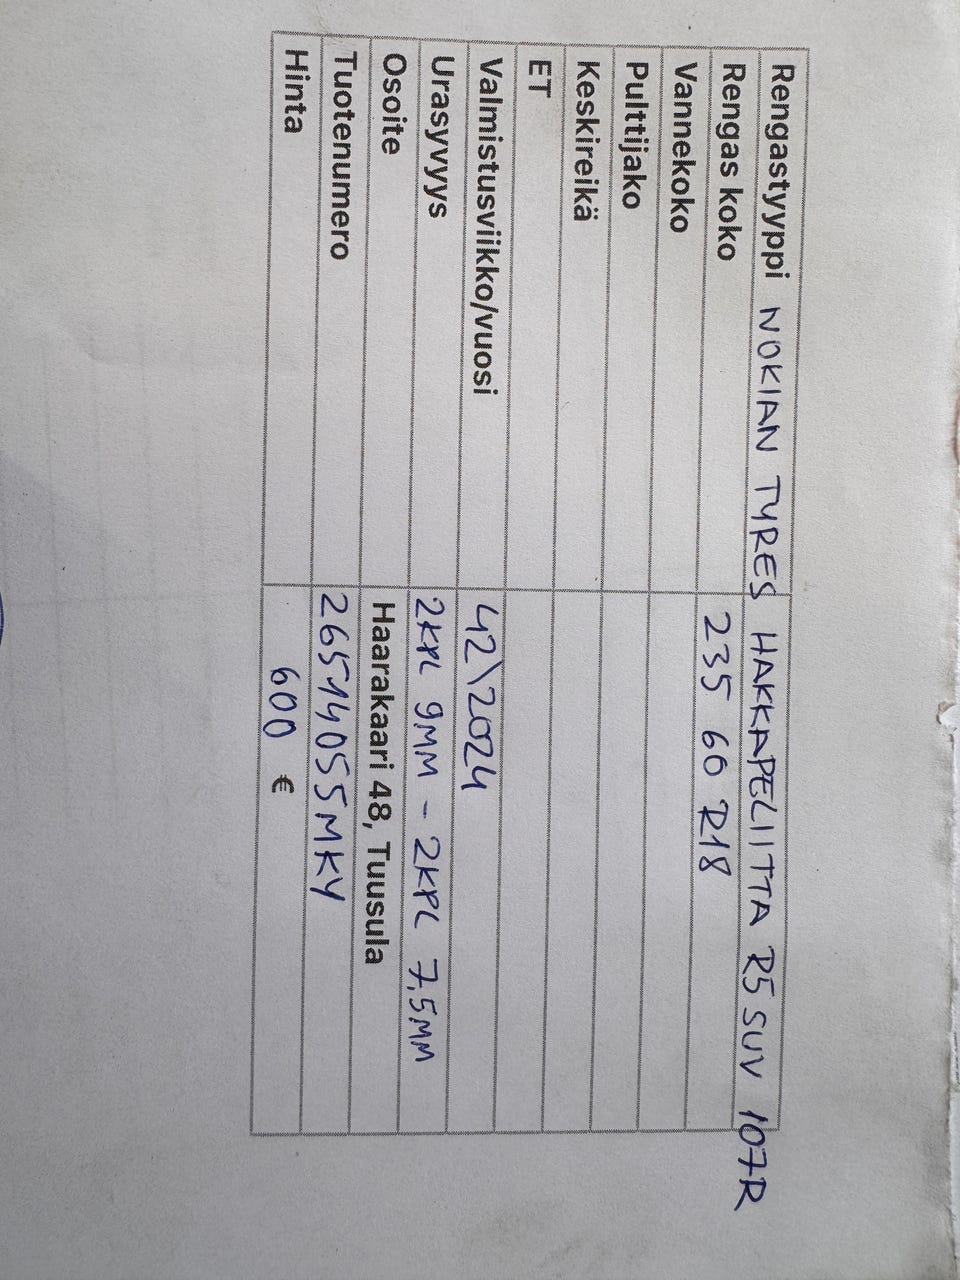 Rengastyyppi NOKIAN TYRES HAKKAPELIITTA R5 SUV 107R
Rengas koko 235 60 R18
Vannekoko
Pulttijako
Keskireikä
ET
Valmistusviikko/vuosi 42\2024
Urasyvyys 2KPL 9MM - 2KPL 7,5MM
Osoite Haarakaari 48, Tuusula
Tuotenumero 26514055MKY
Hinta 600 €